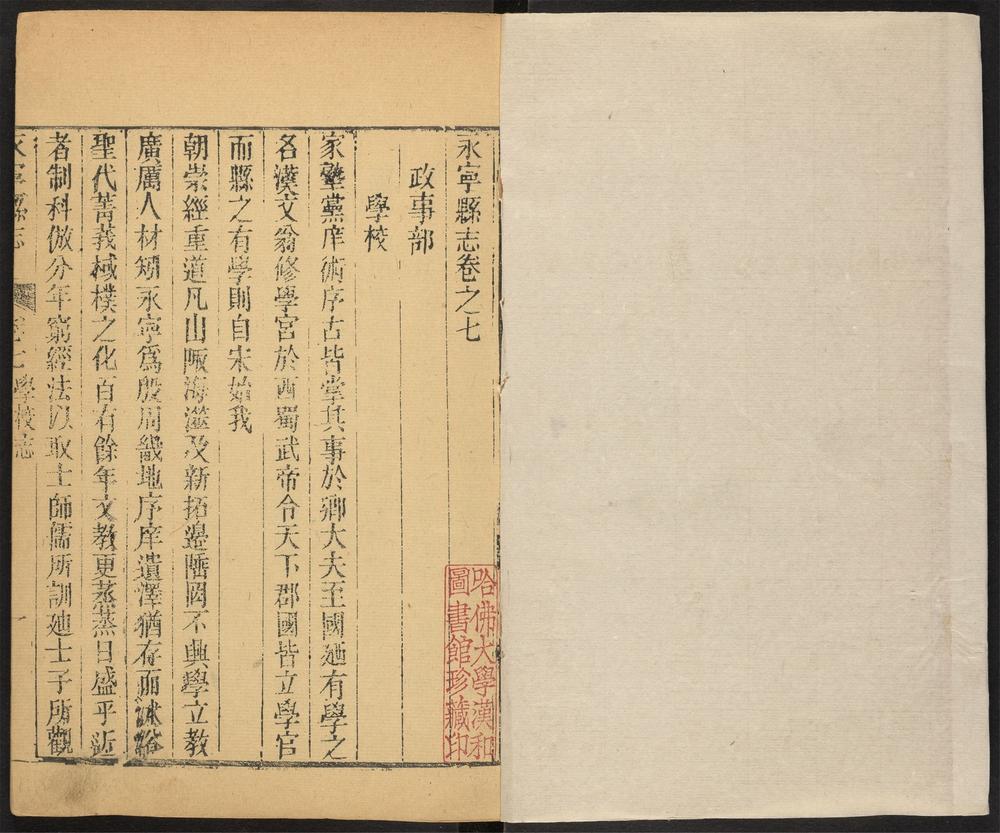 永寧縣志卷之七
政事部
學校
家塾黨庠術序古皆掌其事於鄉大夫至國廼有學之
名漢文翁修學宮於西蜀武帝令天下郡國皆立學官
而縣之有學則自宋始我
朝崇經重道凡山陬海澨及新拓邊陲罔不興學立教
廣厲人材矧永寧爲殷周畿地序庠遺澤猶存而沐浴
聖代菁莪棫樸之化百有餘年文教更蒸蒸日盛乎近
者制科倣分年窮經法以取士師儒所訓廸士子所觀
永寧縣志 卷之七 學校志 一
哈佛大學漢和
圖書館珍藏印